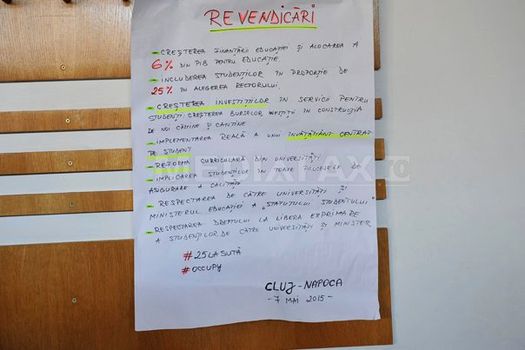 REVENDICĂRI
- CREȘTEREA FINANȚĂRII EDUCAȚIEI ȘI ALOCAREA A
6% DIN PIB PENTRU EDUCAȚIE
- INCLUDEREA STUDENȚILOR ÎN PROPORȚIE DE
25% ÎN ALEGEREA RECTORULUI
- CREȘTEREA INVESTIȚIILOR ÎN SERVICII PENTRU
STUDENȚI: CREȘTEREA BURSELOR, INVESTIȚII ÎN CONSTRUCȚIA
DE NOI CĂMINE ȘI CANTINE
- IMPLEMENTAREA REALĂ A UNUI ÎNVĂȚĂMÂNT CENTRAT
PE STUDENT
- REFORMA CURRICULARĂ DIN UNIVERSITĂȚI
- IMPLICAREA STUDENȚILOR ÎN TOATE PROCESELE DE
ASIGURARE A CALITĂȚII
- RESPECTAREA DE CĂTRE UNIVERSITĂȚI ȘI
MINISTERUL EDUCAȚIEI A STATUTULUI STUDENTULUI
- RESPECTAREA DREPTULUI LA LIBERA EXPRIMARE
A STUDENȚILOR DE CĂTRE UNIVERSITĂȚI ȘI MINISTER
#25LASUTĂ
#OCCUPY
CLUJ-NAPOCA
- 7 MAI 2015 -